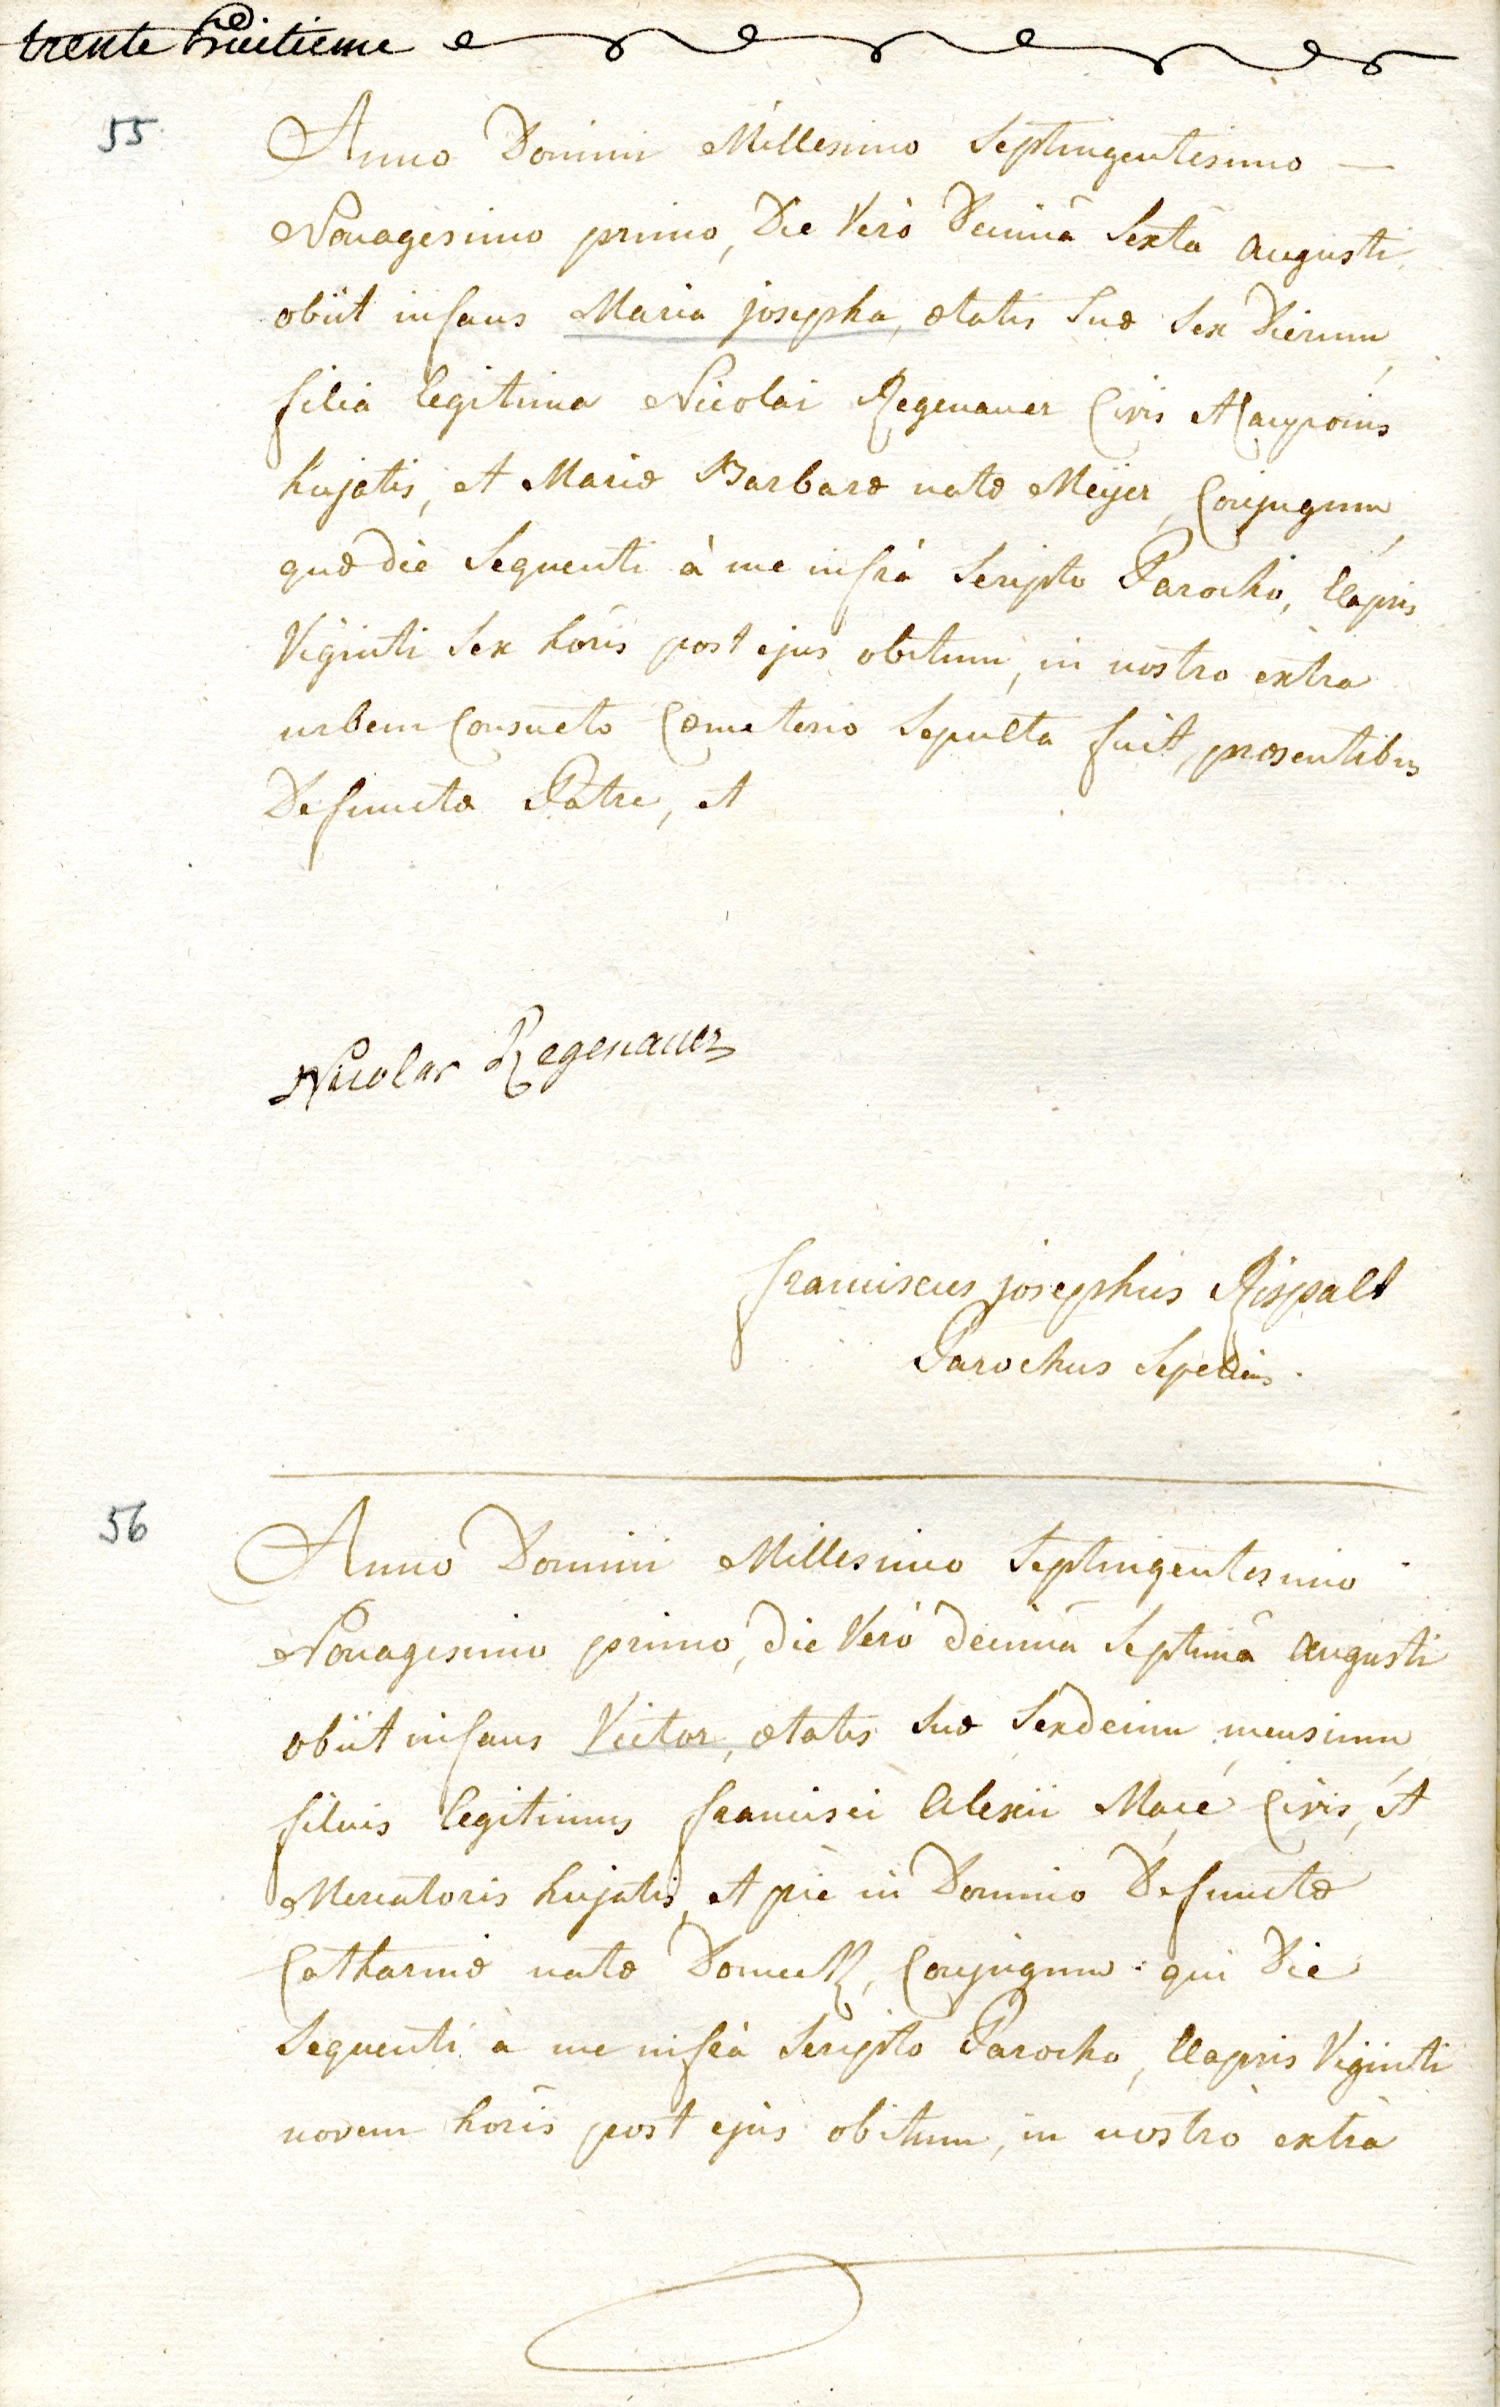 trente huitieme
55
Anno Domini Millesimo Septingentesimo —
Nonagesimo primo, Die Verò Decimâ Sextâ Augusti
obiit infans Maria josepha, ætatis Suæ Sex Dierum,
filia legitima Nicolai Regenauer Civis
hujatis, et Mariæ Barbaræ natæ Meÿer, Conjugum,
quæ die Sequenti à me infrà Scripto Parocho, Elapsis
Viginti Sex horis post ejus obitum, in nostro extra
urbem Consueto Cœmeterio Sepulta fuit, præsentibus
Defunctæ Patre, et
Nicolas Regenauer
franciscus josephus Rispalt
Parochus
56
Anno Domini Millesimo Septingentesimo
Nonagesimo primo, die Verò decimâ Septimâ Augusti
obiit infans Victor, ætatis Suæ Sexdecim mensium,
filius legitimus francisci Alexii Macé Civis, et
Mercatoris hujatis, et piè in Domino Defunctæ
Catharinæ natæ Conjugum : qui Die
Sequenti à me infrà Scripto Parocho, Elapsis Viginti
novem horis post ejus obitum, in nostro extrà